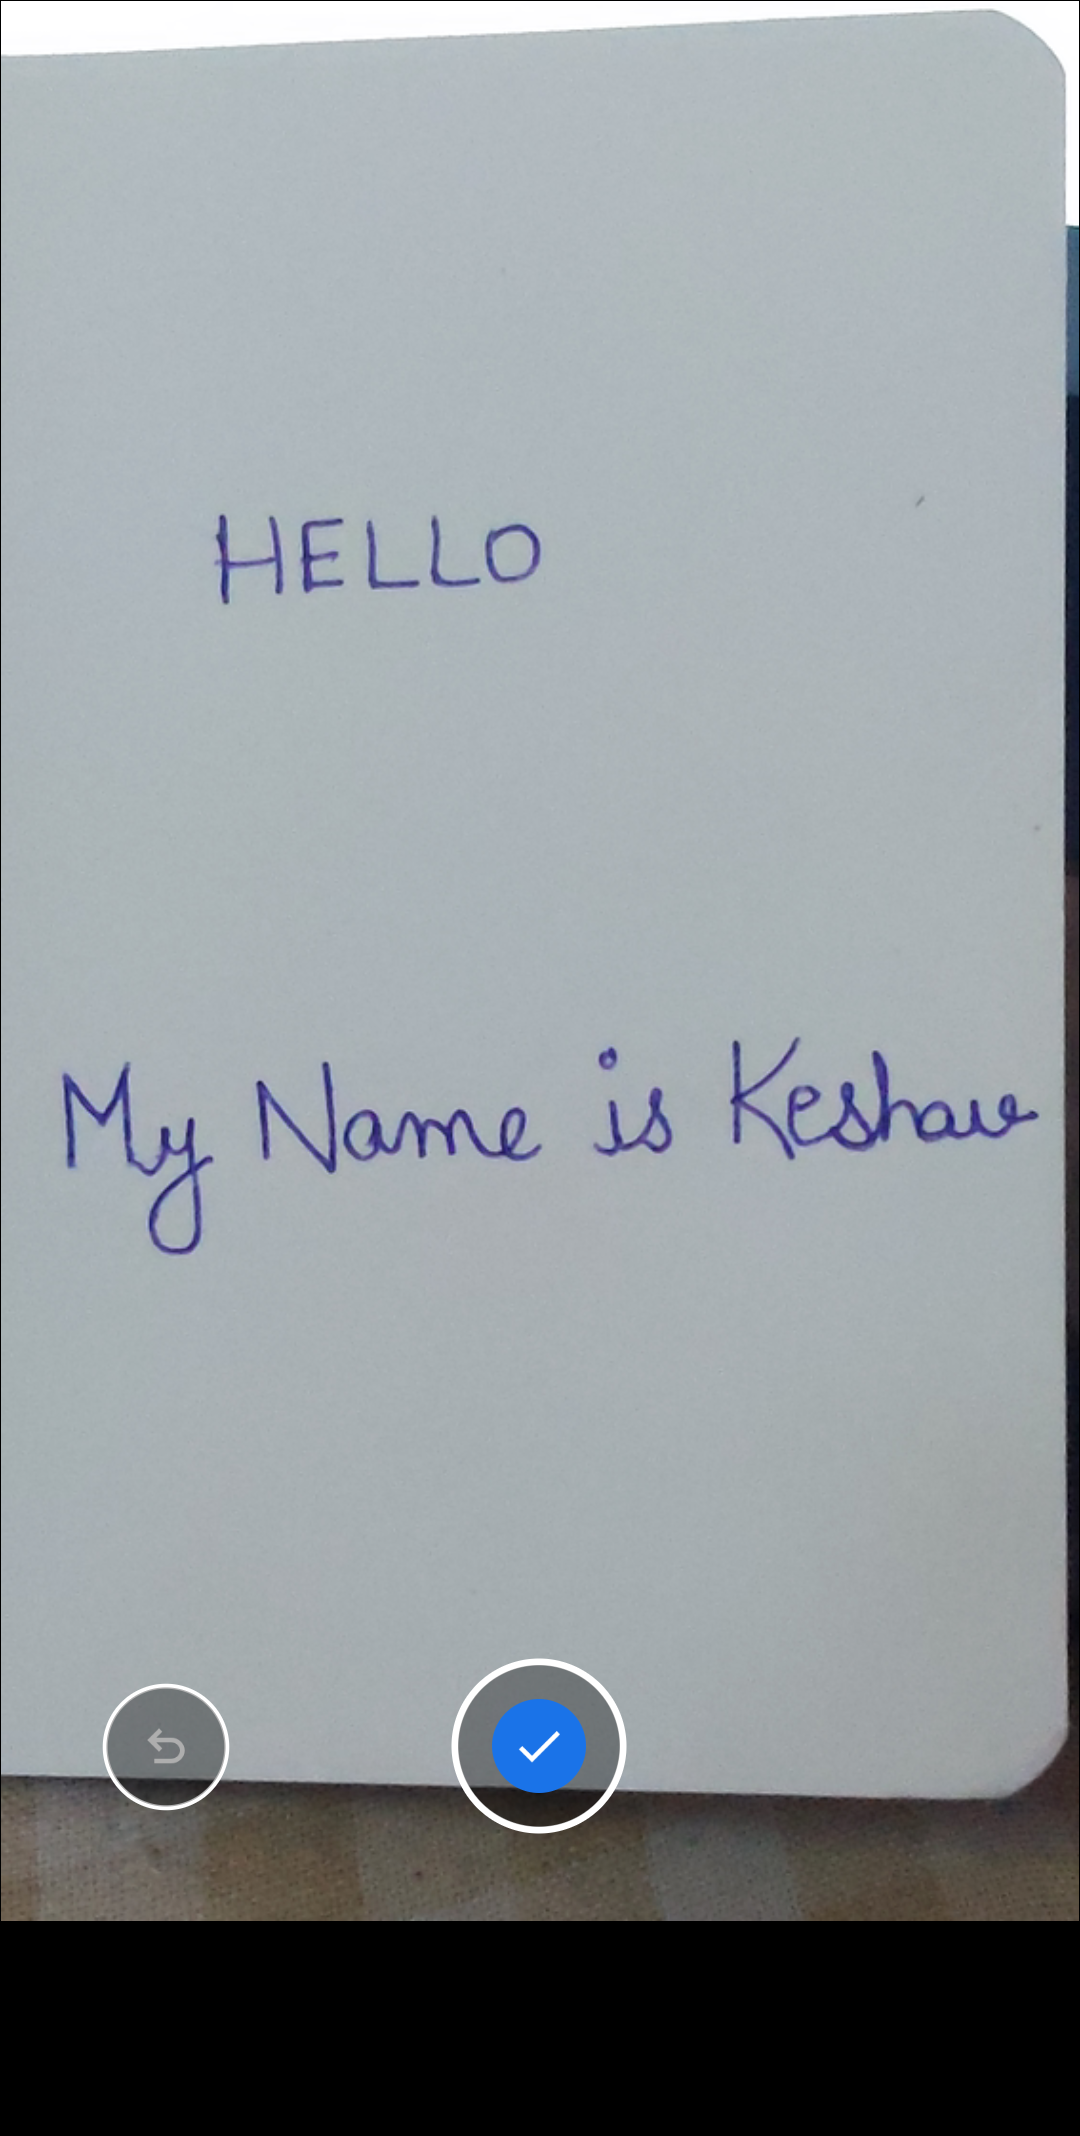 HELLO
My Name is Keshav